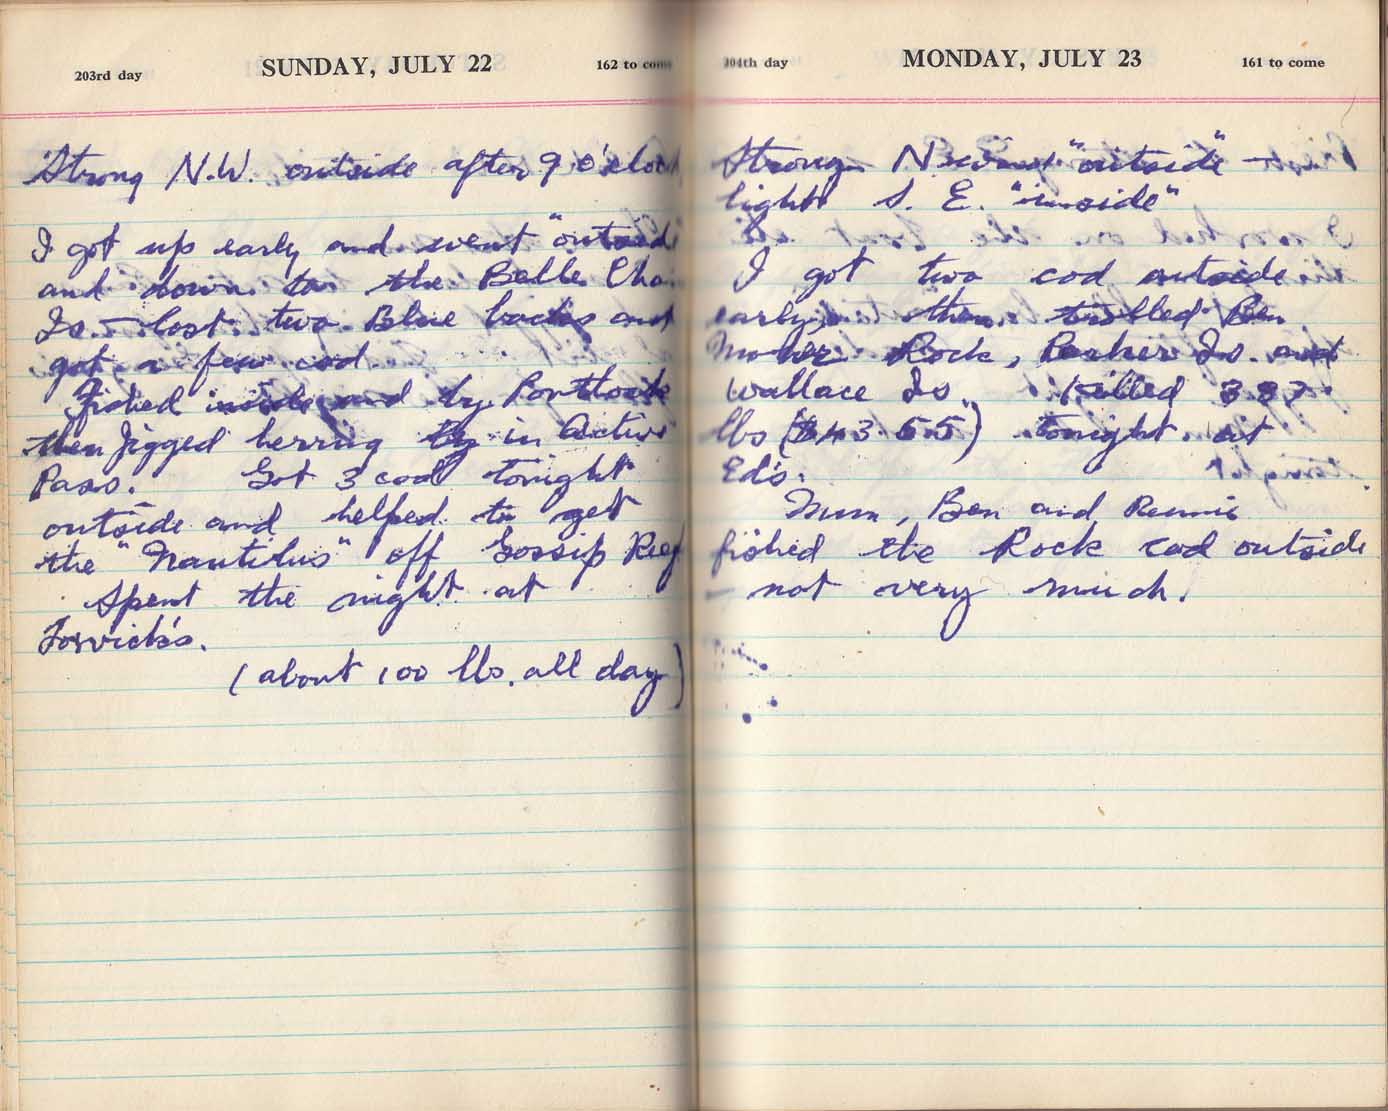 203rd day SUNDAY, JULY 22 162 to come
Strong N.W. outside after 9 o'clock
I got up early and went "outside"
and down to the Belle Cha
Is. — lost two Blue backs and
got a few cod.
Fished inside and by Portlock
then jigged herring in Active
Pass. Got 3 cod tonight
outside and helped to get
the "Nautilus" off Gossip Reef
Spent the night at
(about 100 lbs. all day)
204th day MONDAY, JULY 23 161 to come
Strong N. wind "outside" —
light S. E. "inside"
I got two cod outside
early, then trolled Ben
Rock, Parker Is. and
Wallace Is. Killed 387
lbs ($43.55) tonight at
Ed's.
Mum, Ben and
fished the Rock cod outside
— not very much.